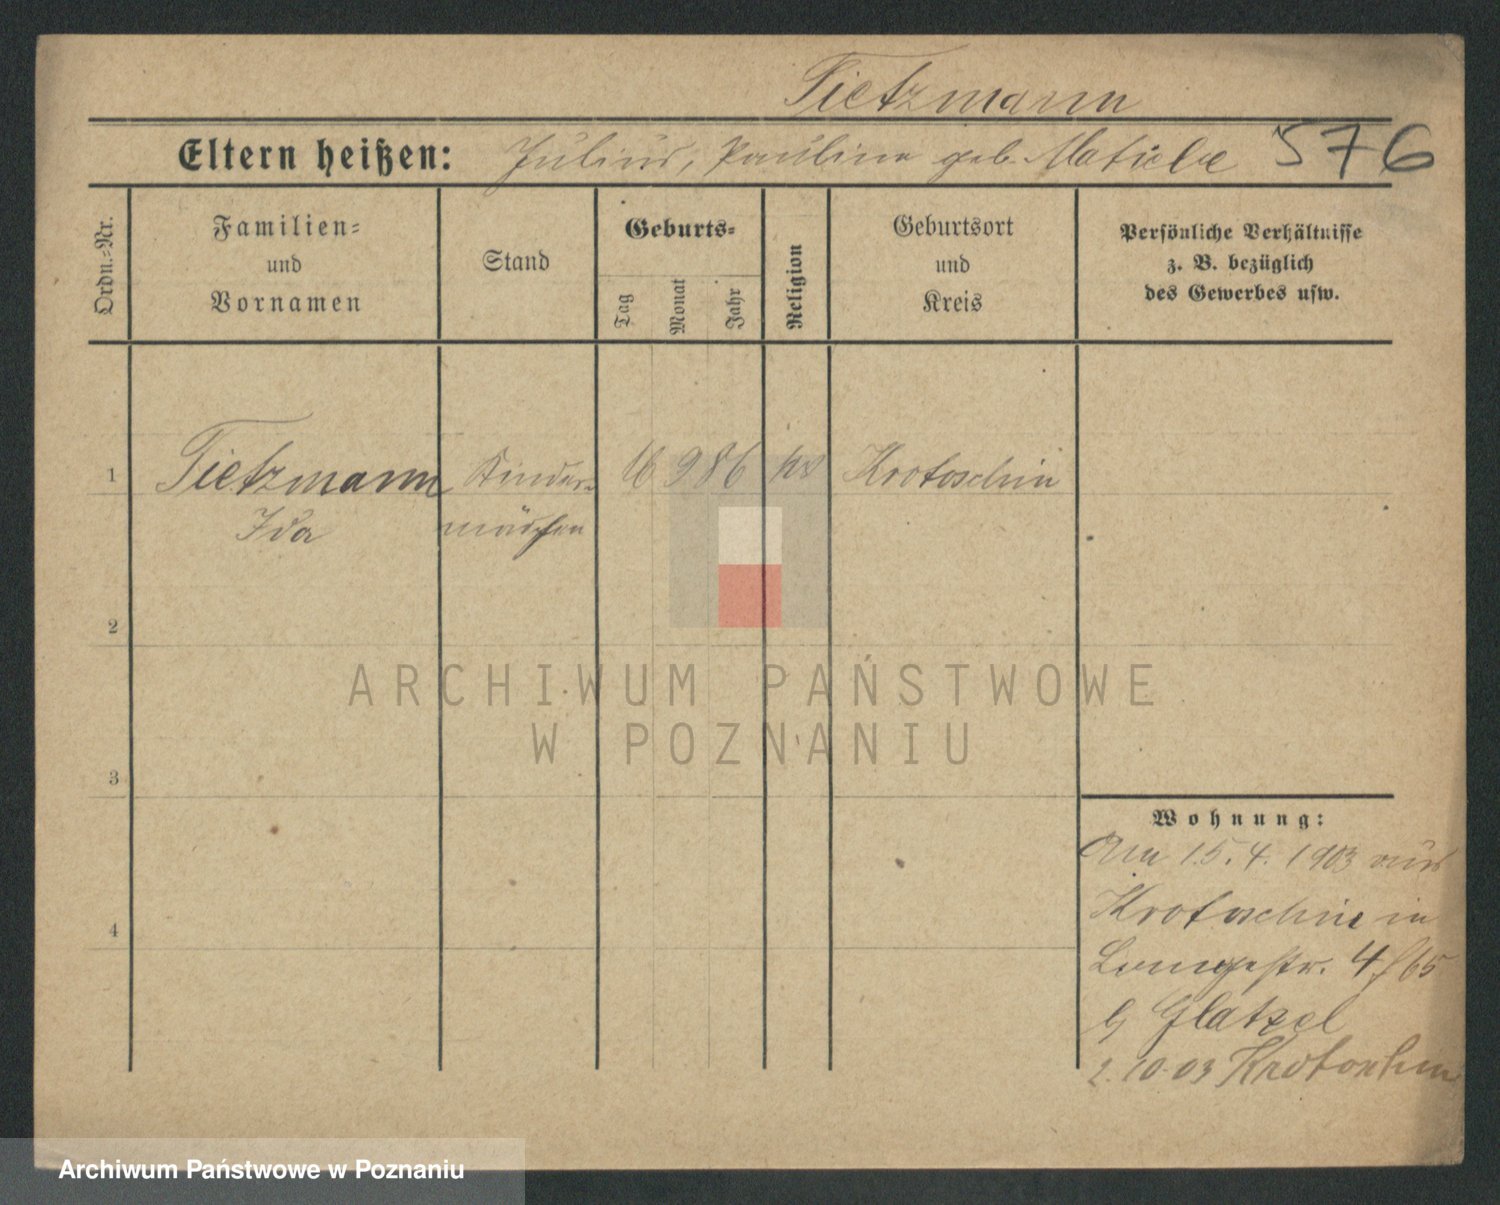 Tietzmann
Eltern heißen: Julius, Paulina geb. Maticke 576
Ordn.-Nr.
Familien-
und
Vornamen
Stand
Geburts-
Tag
Monat
Jahr
Religion
Geburtsort
und
Kreis
Persönliche Verhältnisse
z. B. bezüglich
des Gewerbes usw.
1 Tietzmann Kinder- 16 9 86 Krotoschin
Ida mädchen
2
3
4
Wohnung:
Am 15.4.1903 aus
Krotoschin in
Langestr. 4
Glatzel
2.10.03 Krotoschin
ARCHIWUM PAŃSTWOWE
W POZNANIU
Archiwum Państwowe w Poznaniu